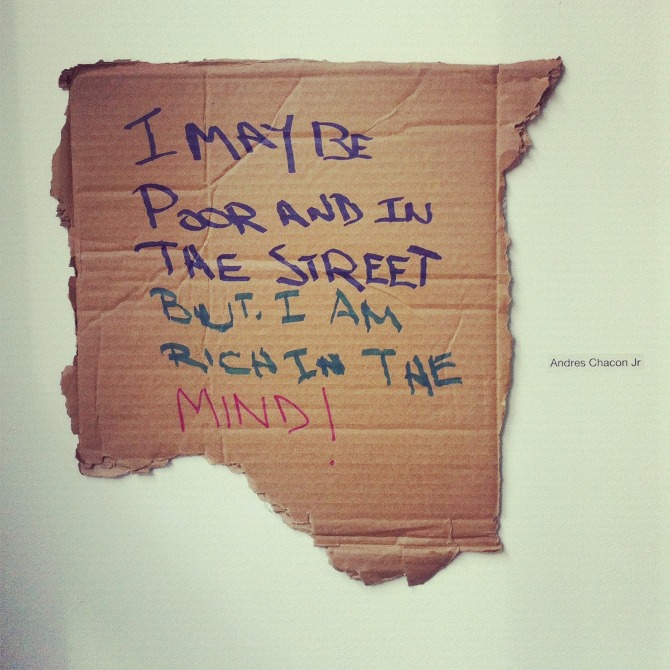 I MAY BE
POOR AND IN
THE STREET
BUT. I AM
RICH IN THE
MIND!
Andres Chacon Jr